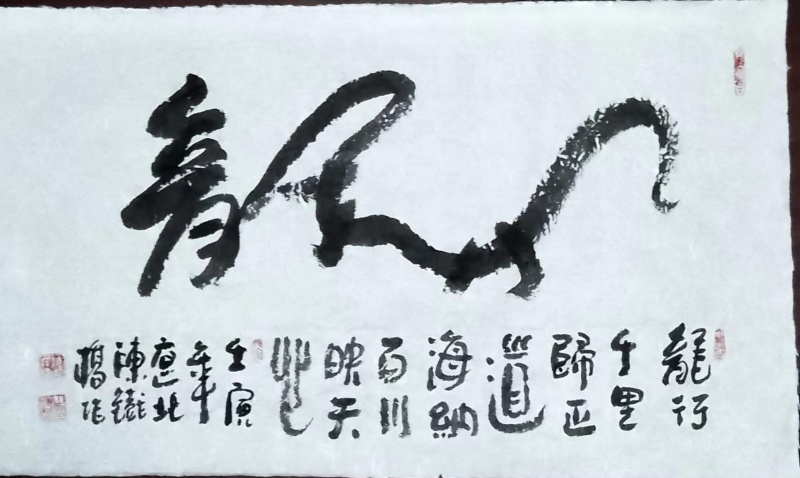 龍
龍行
千里
歸正
道
海納
百川
映天
地
壬寅
年
遼北
陳鐵
橋作